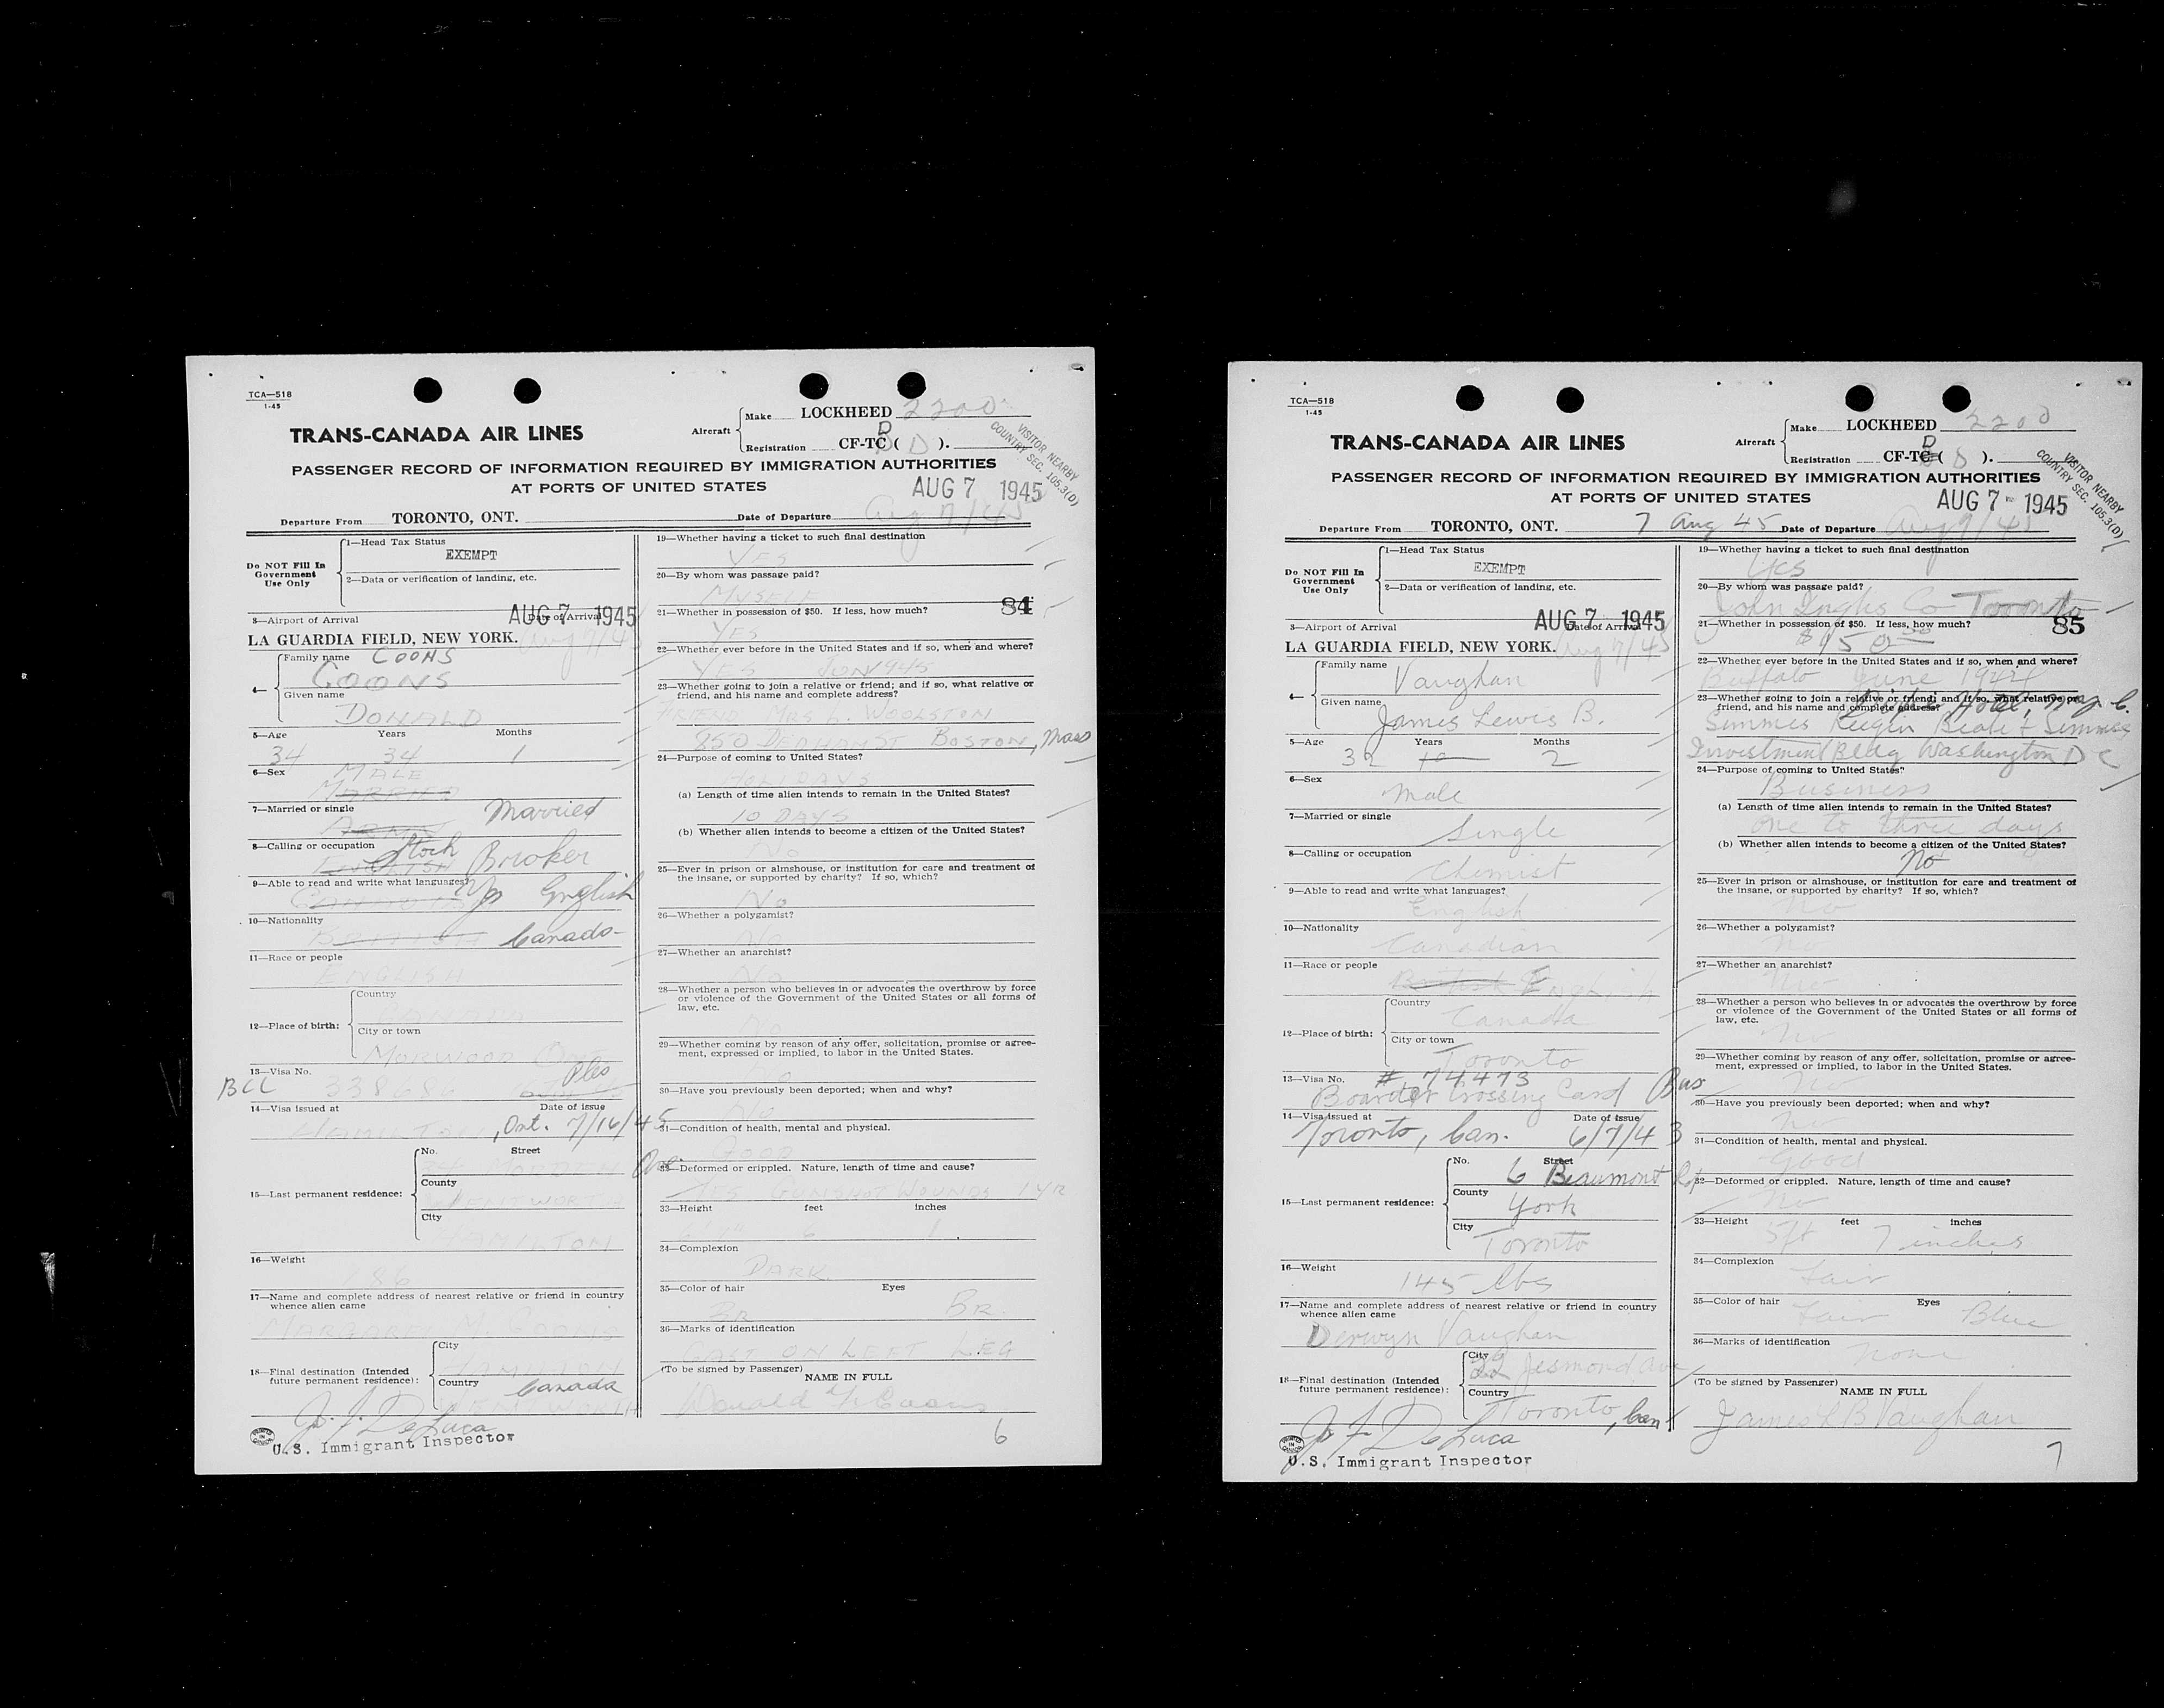 TCA—518
1-45
TRANS-CANADA AIR LINES
Aircraft
Make LOCKHEED 2200
Registration CF-TC ( D ).
D
VISITOR NEARBY
COUNTRY SEC. 105.3(D)
PASSENGER RECORD OF INFORMATION REQUIRED BY IMMIGRATION AUTHORITIES
AT PORTS OF UNITED STATES
AUG 7 1945
Departure From TORONTO, ONT. Date of Departure Aug 7/45
Do NOT Fill In
Government
Use Only
1—Head Tax Status
EXEMPT
2—Data or verification of landing, etc.
3—Airport of Arrival Date of Arrival
AUG 7 1945
LA GUARDIA FIELD, NEW YORK.
4—
Family name COONS
COONS
Given name
DONALD
5—Age Years Months
34 34 1
6—Sex
MALE
7—Married or single
Married
8—Calling or occupation
Stock Broker
9—Able to read and write what languages?
Yes English
10—Nationality
Canada-
11—Race or people
ENGLISH
12—Place of birth:
Country
CANADA
City or town
MORWOOD ONT
13—Visa No.
BCC 338686 Ples
14—Visa issued at Date of issue
HAMILTON, Ont. 7/16/45
15—Last permanent residence:
No. Street
Ave
County
WENTWORTH
City
HAMILTON
16—Weight
186
17—Name and complete address of nearest relative or friend in country
whence alien came
MARGARET M COONS
18—Final destination (Intended
future permanent residence):
City
HAMILTON
Country Canada
WENTWORTH
J. F. DeLuca
U.S. Immigrant Inspector
19—Whether having a ticket to such final destination
YES
20—By whom was passage paid?
MYSELF
84
21—Whether in possession of $50. If less, how much?
YES
22—Whether ever before in the United States and if so, when and where?
YES
23—Whether going to join a relative or friend; and if so, what relative or
friend, and his name and complete address?
FRIEND MRS L. WOOLSTON
850 ST BOSTON, Mass
24—Purpose of coming to United States?
HOLIDAYS
(a) Length of time alien intends to remain in the United States?
10 DAYS
(b) Whether alien intends to become a citizen of the United States?
No
25—Ever in prison or almshouse, or institution for care and treatment of
the insane, or supported by charity? If so, which?
No
26—Whether a polygamist?
No
27—Whether an anarchist?
No
28—Whether a person who believes in or advocates the overthrow by force
or violence of the Government of the United States or all forms of
law, etc.
No
29—Whether coming by reason of any offer, solicitation, promise or agree-
ment, expressed or implied, to labor in the United States.
No
30—Have you previously been deported; when and why?
No
31—Condition of health, mental and physical.
GOOD
32—Deformed or crippled. Nature, length of time and cause?
YES GUNSHOT WOUNDS 1 YR
33—Height feet inches
6 1
34—Complexion
DARK
35—Color of hair Eyes
BR BR
36—Marks of identification
CAST ON LEFT LEG
(To be signed by Passenger)
NAME IN FULL
Donald Coons
6
TCA—518
1-45
TRANS-CANADA AIR LINES
Aircraft
Make LOCKHEED 2200
Registration CF-TC ( D ).
D
VISITOR NEARBY
COUNTRY SEC. 105.3(D)
PASSENGER RECORD OF INFORMATION REQUIRED BY IMMIGRATION AUTHORITIES
AT PORTS OF UNITED STATES
AUG 7 1945
Departure From TORONTO, ONT. 7 Aug 45 Date of Departure Aug 7/45
Do NOT Fill In
Government
Use Only
1—Head Tax Status
EXEMPT
2—Data or verification of landing, etc.
3—Airport of Arrival Date of Arrival
AUG 7 1945
LA GUARDIA FIELD, NEW YORK. Aug 7/45
4—
Family name
Vaughan
Given name
James Lewis B.
5—Age Years Months
32 2
6—Sex
Male
7—Married or single
Single
8—Calling or occupation
Chemist
9—Able to read and write what languages?
English
10—Nationality
Canadian
11—Race or people
British English
12—Place of birth:
Country
Canada
City or town
Toronto
13—Visa No. # 74473
Boarder Crossing Card Bus
14—Visa issued at Date of issue
Toronto, Can. 6/7/43
15—Last permanent residence:
No. Street
6 Beaumont Rd
County
York
City
Toronto
16—Weight
145 lbs
17—Name and complete address of nearest relative or friend in country
whence alien came
Derwyn Vaughan
18—Final destination (Intended
future permanent residence):
City
22 Jesmond Ave
Country
Toronto, Can
J. F. DeLuca
U.S. Immigrant Inspector
19—Whether having a ticket to such final destination
Yes
20—By whom was passage paid?
John Inglis Co Toronto
85
21—Whether in possession of $50. If less, how much?
$150.00
22—Whether ever before in the United States and if so, when and where?
Buffalo June 1944
23—Whether going to join a relative or friend; and if so, what relative or
friend, and his name and complete address?
Hotel, N.Y.C.
Simmes Keegin Beale & Simmes
Investment Bldg Washington D C
24—Purpose of coming to United States?
Business
(a) Length of time alien intends to remain in the United States?
One to three days
(b) Whether alien intends to become a citizen of the United States?
No
25—Ever in prison or almshouse, or institution for care and treatment of
the insane, or supported by charity? If so, which?
No
26—Whether a polygamist?
No
27—Whether an anarchist?
No
28—Whether a person who believes in or advocates the overthrow by force
or violence of the Government of the United States or all forms of
law, etc.
No
29—Whether coming by reason of any offer, solicitation, promise or agree-
ment, expressed or implied, to labor in the United States.
No
30—Have you previously been deported; when and why?
No
31—Condition of health, mental and physical.
Good
32—Deformed or crippled. Nature, length of time and cause?
No
33—Height feet inches
5ft 7 inches
34—Complexion
Fair
35—Color of hair Eyes
Fair Blue
36—Marks of identification
None
(To be signed by Passenger)
NAME IN FULL
James L B Vaughan
7